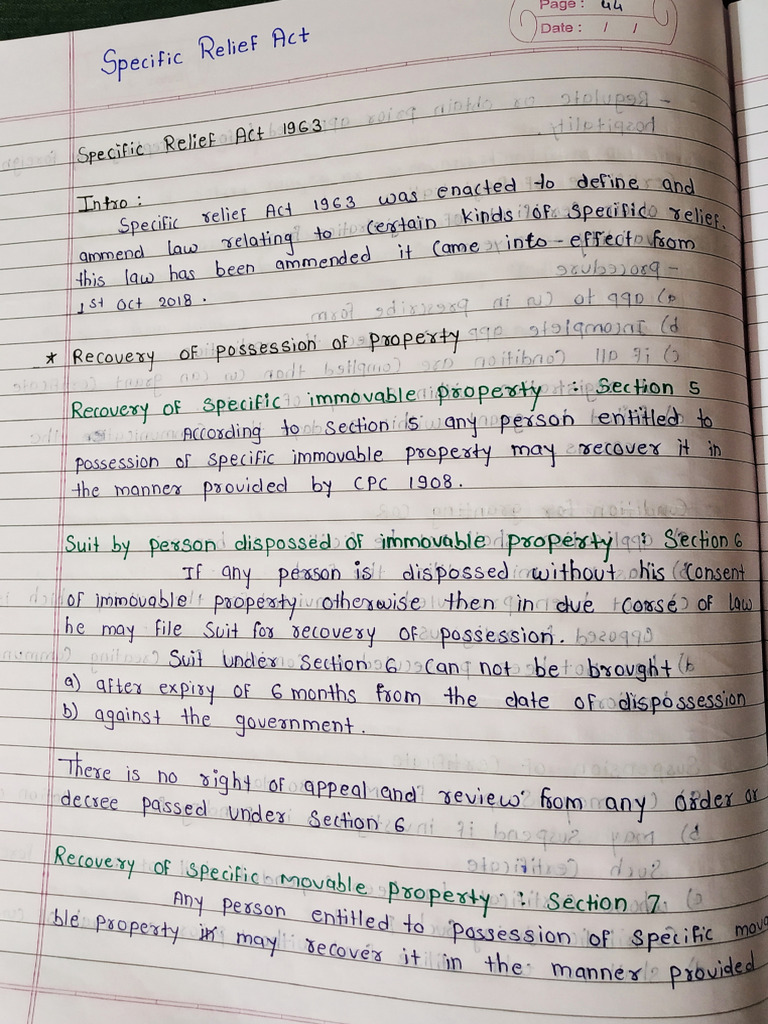 Page : 44
Date : / /
Specific Relief Act
Specific Relief Act 1963
Intro :
Specific relief Act 1963 was enacted to define and
ammend law relating to certain kinds of specific relief.
this law has been ammended it came into effect from
1st Oct 2018.
* Recovery of possession of property
Recovery of specific immovable property : Section 5
According to section 5 any person entitled to
possession of specific immovable property may recover it in
the manner provided by CPC 1908.
Suit by person dispossed of immovable property : Section 6
If any person is dispossed without his consent
of immovable property otherwise then in due corse of law
he may file suit for recovery of possession.
Suit under section 6 can not be brought
a) after expiry of 6 months from the date of dispossession
b) against the government.
There is no right of appeal and review from any order or
decree passed under section 6
Recovery of specific movable property : Section 7
Any person entitled to possession of specific mova
ble property may recover it in the manner provided